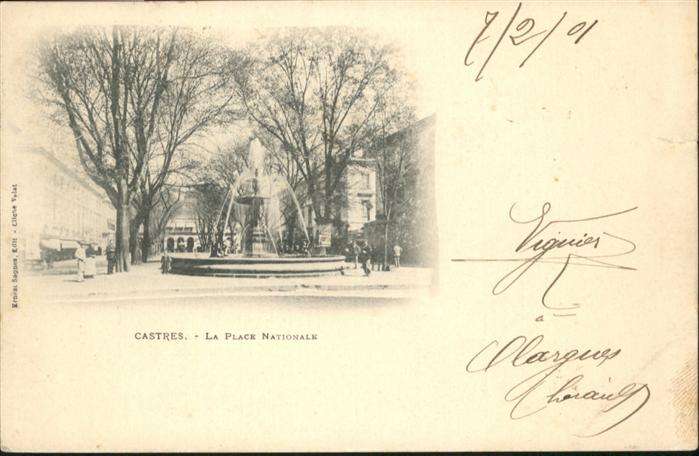 7/2/01
Ernest Sappes, Edit - Cliché Valat
CASTRES. - LA PLACE NATIONALE
Vignier
à
Olargues
hérault